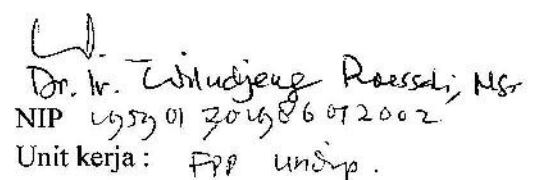 Dr. Ir. Wiludjeng Roessali, MSi
NIP 195901301986012002
Unit kerja : FPP undip.